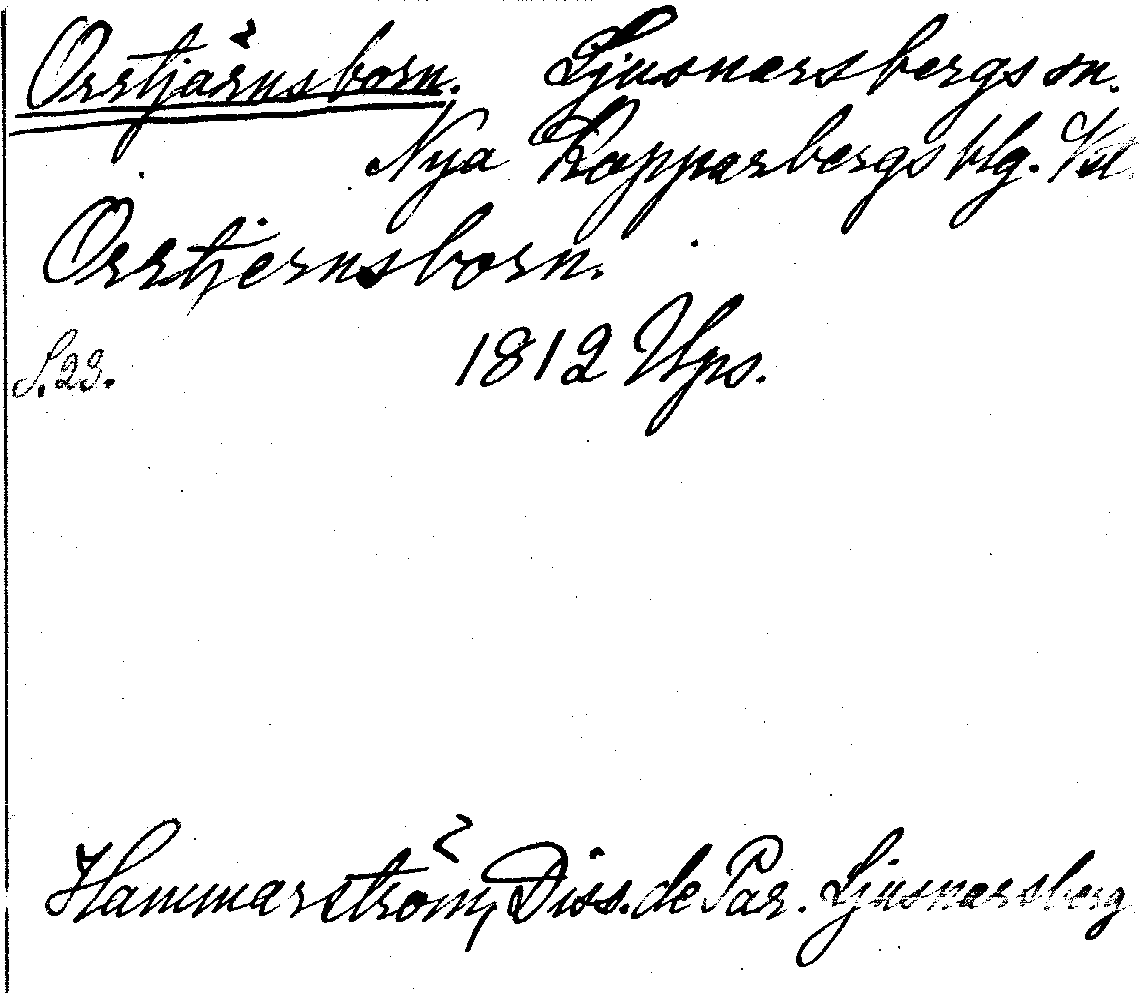 Orrtjärnsborn. Ljusnarsbergs sn.
Nya Kopparbergs blg. Vstl.
Orrtjernsborn.
S. 23. 1812 Ups.
Hammarström, Diss. de Par. Ljusnarsberg